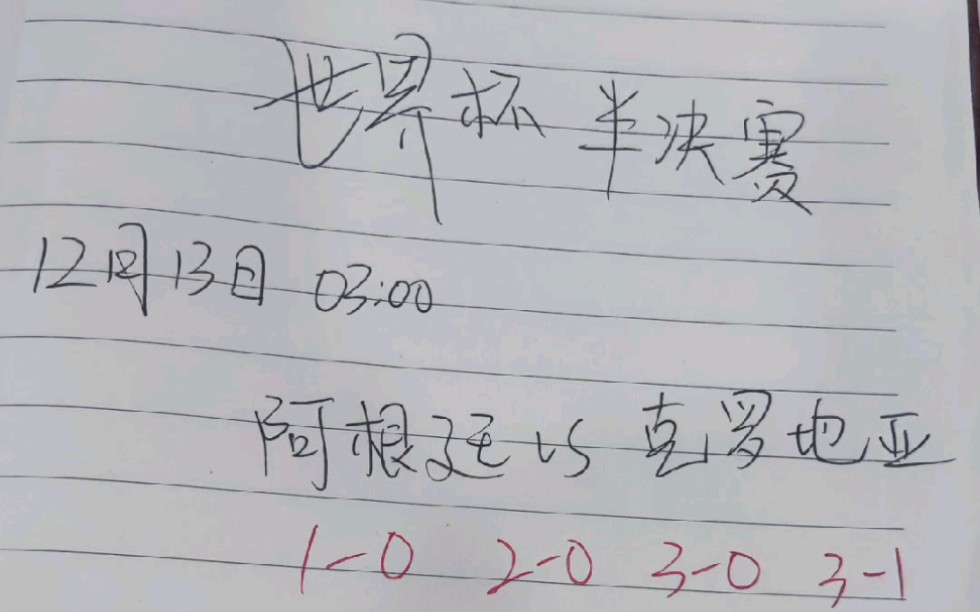 世界杯 半决赛
12月13日 03:00
阿根廷 vs 克罗地亚
1-0 2-0 3-0 3-1